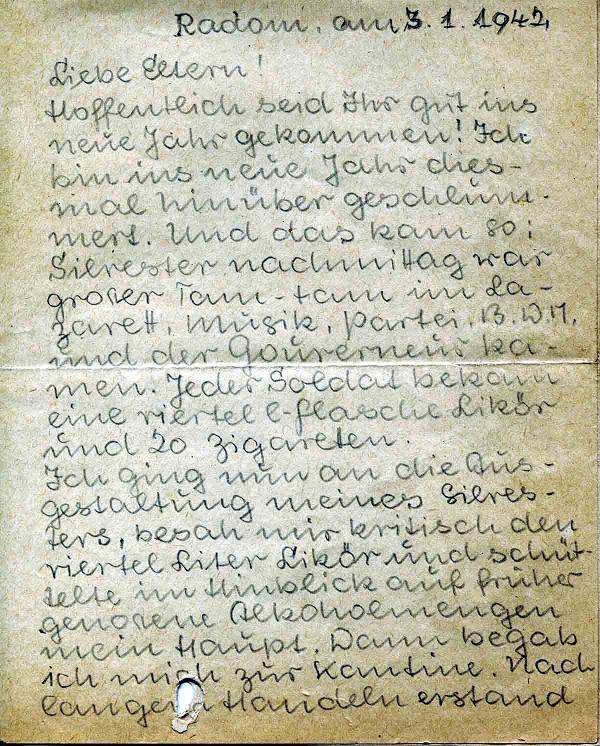 Radom, am 3.1.1942
Liebe Eltern!
Hoffentlich seid Ihr gut ins
neue Jahr gekommen! Ich
bin ins neue Jahr dies-
mal hinüber geschlum-
mert. Und das kam so:
Silvester nachmittag war
groser Tam-tam im La-
zarett, Musik, Partei, B.D.M.
und der Gouverneur ka-
men. Jeder Soldat bekam
eine viertel l-flasche Likör
und 20 Zigareten.
Ich ging nun an die Aus-
gestaltung meines Silves-
ters, besah mir kritisch den
viertel Liter Likör und schüt-
telte im Hinblick auf früher
genosene Alkoholmengen
mein Haupt. Dann begab
ich mich zur Kantine. Nach
langem Handeln erstand